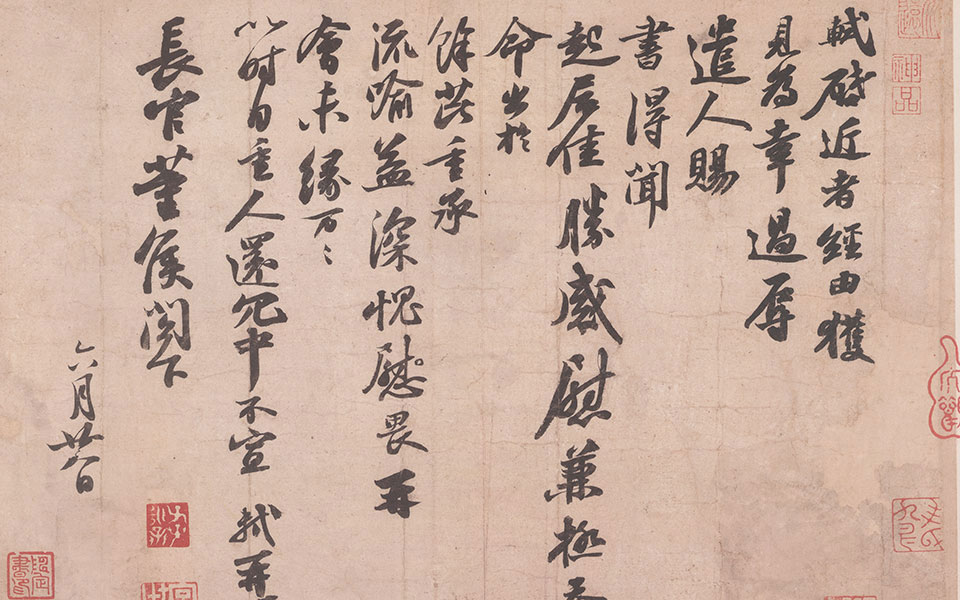 軾啟近者經由獲
見為幸過辱
遣人賜
書得聞
起居佳勝感慰兼極
命出於
餘芘重承
流喻益深愧慰畏再
會未緣万〻
以時自重人還冗中不宣軾再
長官董侯閤下
六月廿八日
神品